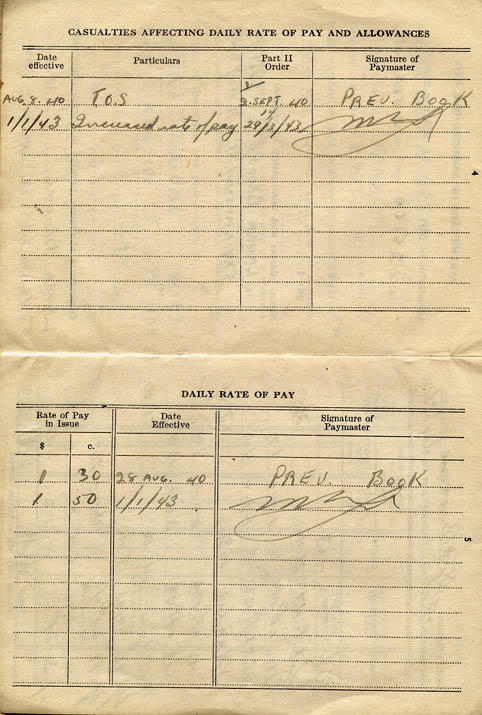 CASUALTIES AFFECTING DAILY RATE OF PAY AND ALLOWANCES
Date effective Particulars Part II Order Signature of Paymaster
AUG. 8. 40 T.O.S 2. SEPT. 40 PREV. BOOK
1/1/43 Increased rate of pay 29/ /43
4
DAILY RATE OF PAY
Rate of Pay in Issue Date Effective Signature of Paymaster
$ c.
1 30 28 AUG. 40 PREV. BOOK
1 50 1/1/43
5